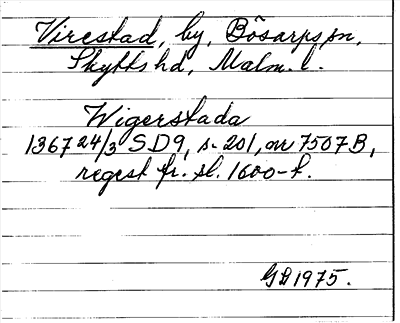 Virestad, by, Bösarps sn,
Skytts hd, Malm. l.
Wigerstada
1367 24/3 SD9, s. 201, nr 7507B,
regest fr. sl. 1600-t.
GB 1975.